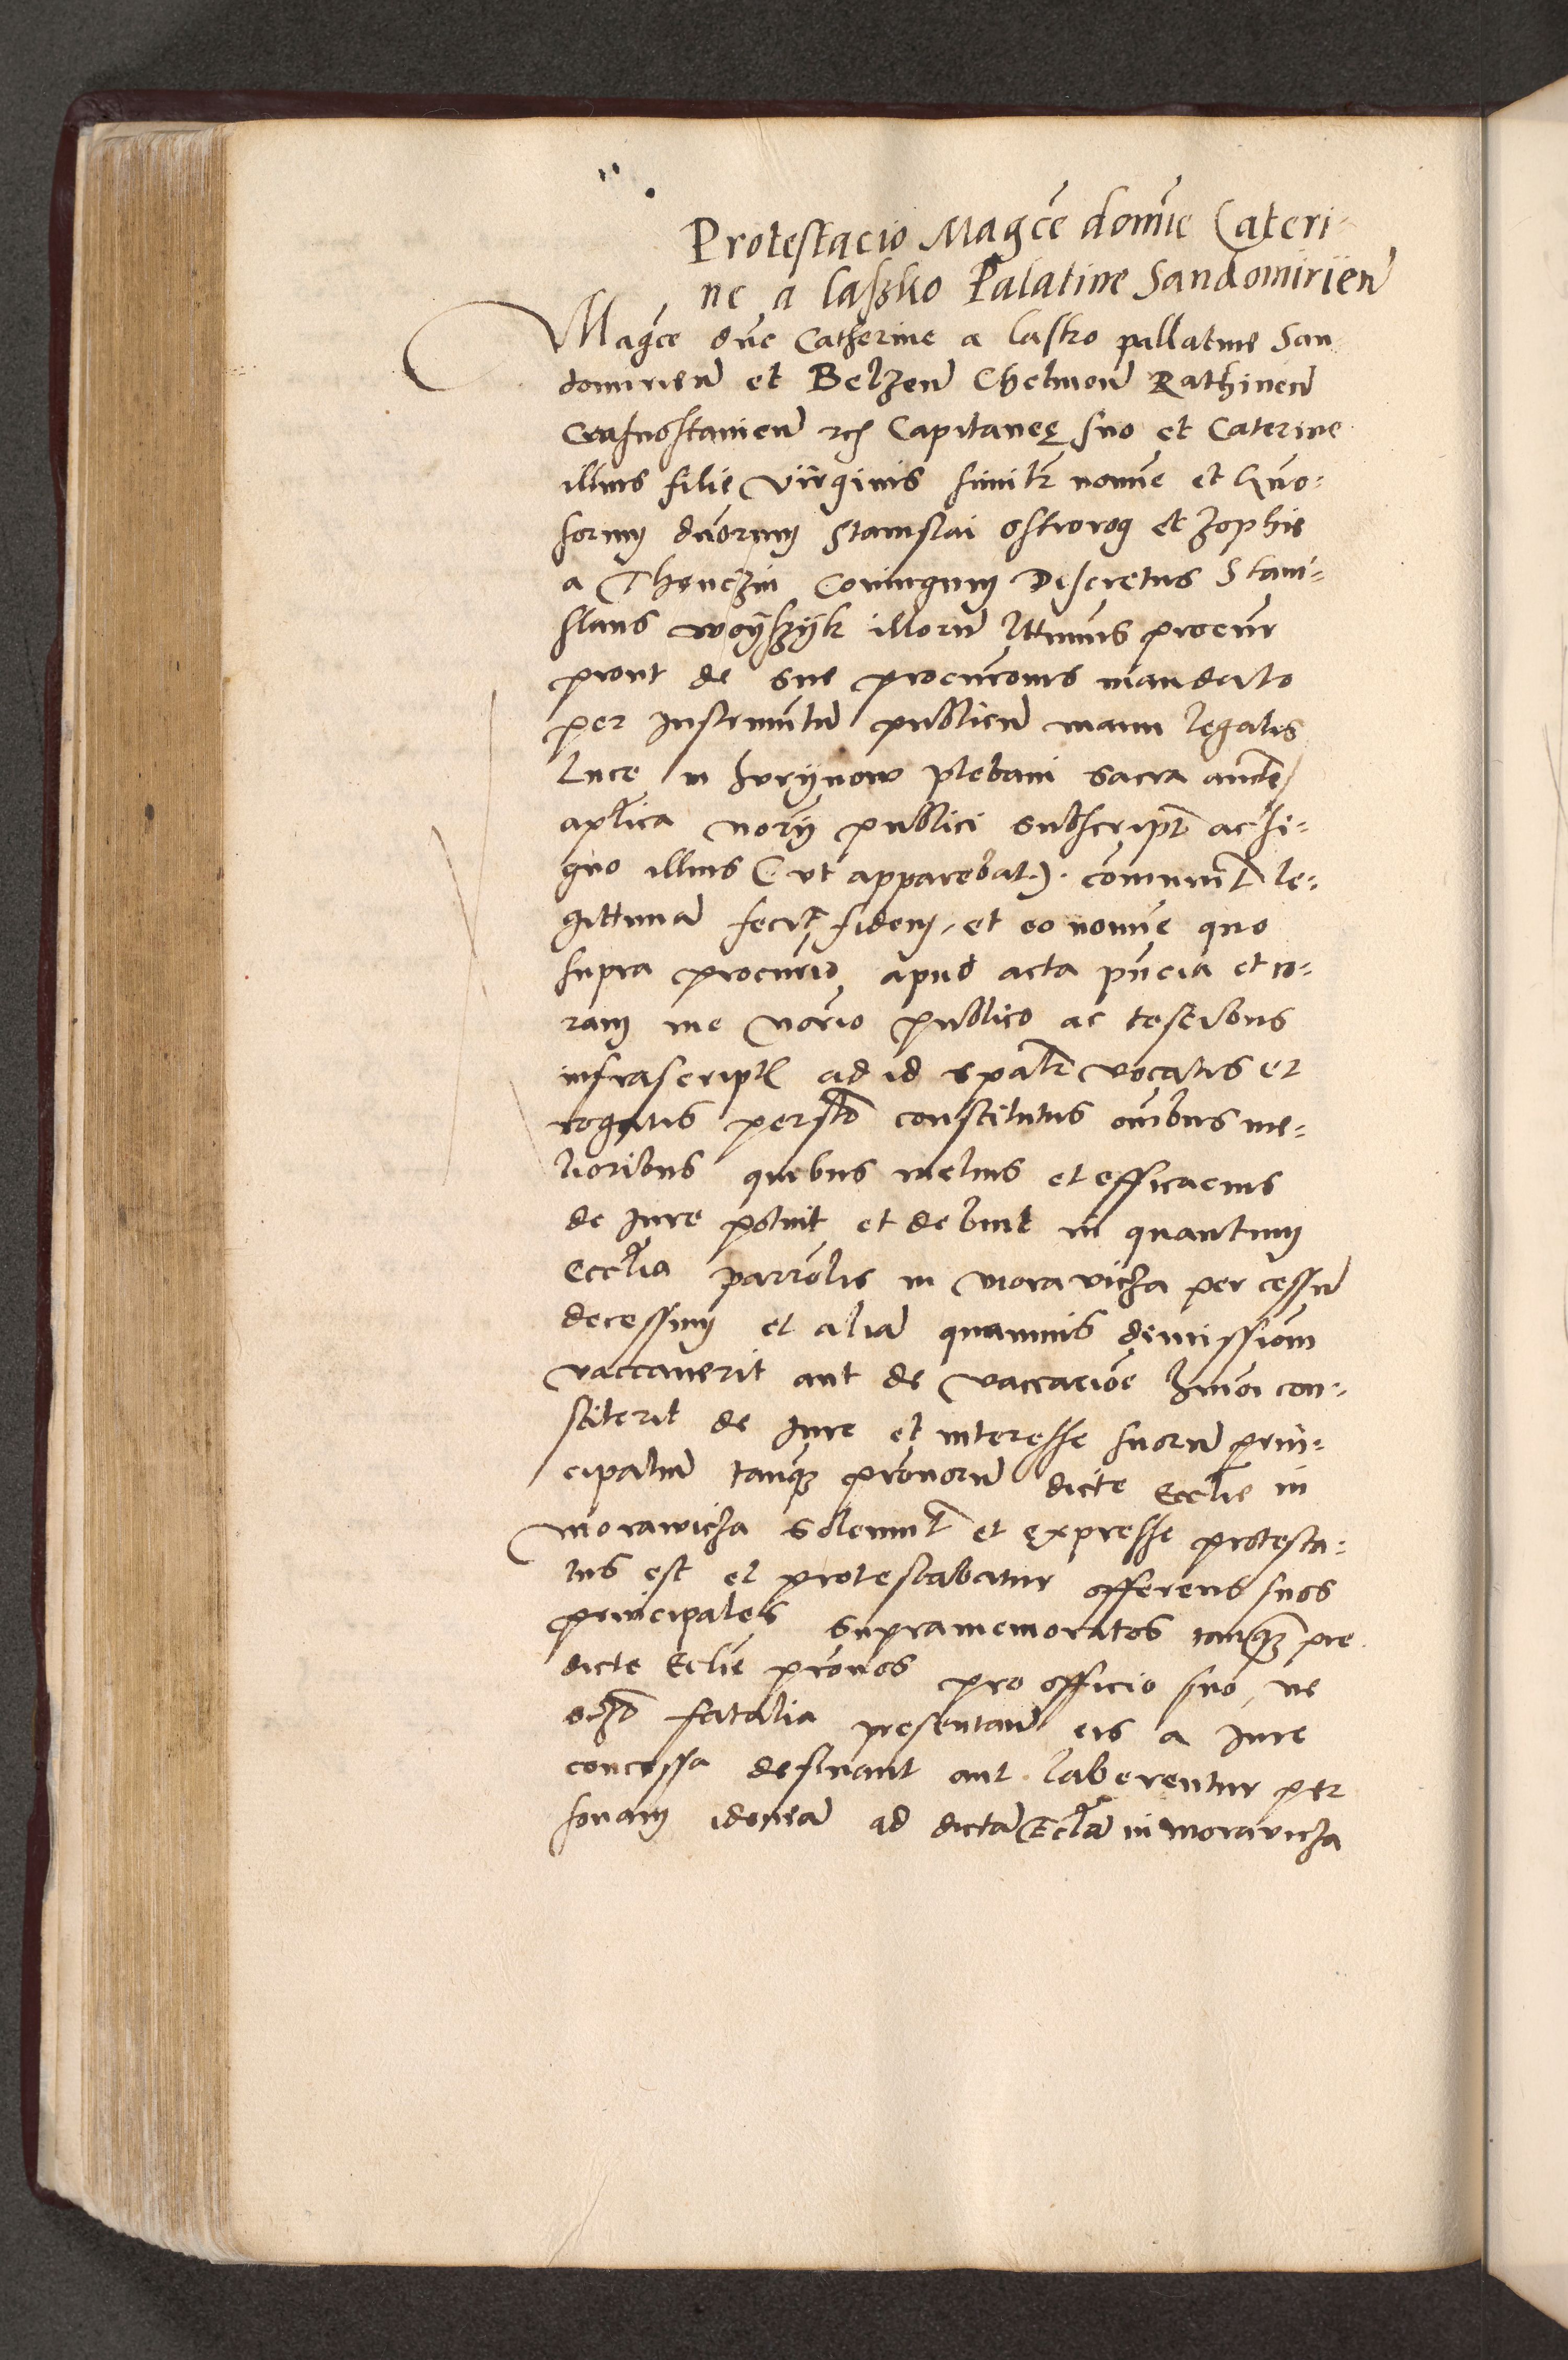 Protestacio Magce domine Cateri-
ne a laszko Palatine Sandomirien
Magce dne Catherine a lasko pallatine San
domirien et Belzen Chelmen Rathinen
Crasnostamien rc Capitanee suo et Caterine
illius filie virginis similr nomine et Gno-
sorum dnorum Stanislai ostrorog et zophie
a Thenczin Coniugum Discretus Stani-
slaus woyszyk illorum lttimus procur
prout de sue procurconis mandato
per instrumentum publicum manu legalis
luce in plebani sacra aucte
aplica norij publici subscript ac si-
gno illius (ut apparebat). comunit le-
gittimam fecit fidem, et eo nomine quo
supra procurio apud acta pncia et co-
ram me norio publico ac testibus
infrascriptis ad id spalr vocatis et
rogatis persolr constitutus omibus me-
lioribus quibus melius et efficacius
de iure potuit et debuit in quantum
ecclia parrolis in moravicza per cessum
decessum et aliam quamuis dimissionem
vaccauerit aut de vaccacione hmoi con-
stiterit de iure et interesse suorum prin-
cipalium tanquam pronorum dicte Ecclie in
morawicza solemnit et expresse protesta-
tus est et protestabatur offerens suos
principales supramemoratos tanquam pre
dicte Eclie pronos pro officio suo, ne
fatalia presentandi eis a iure
concessa desinant aut laberentur per
sonam idoneam ad dictam Ecclam in moravicza